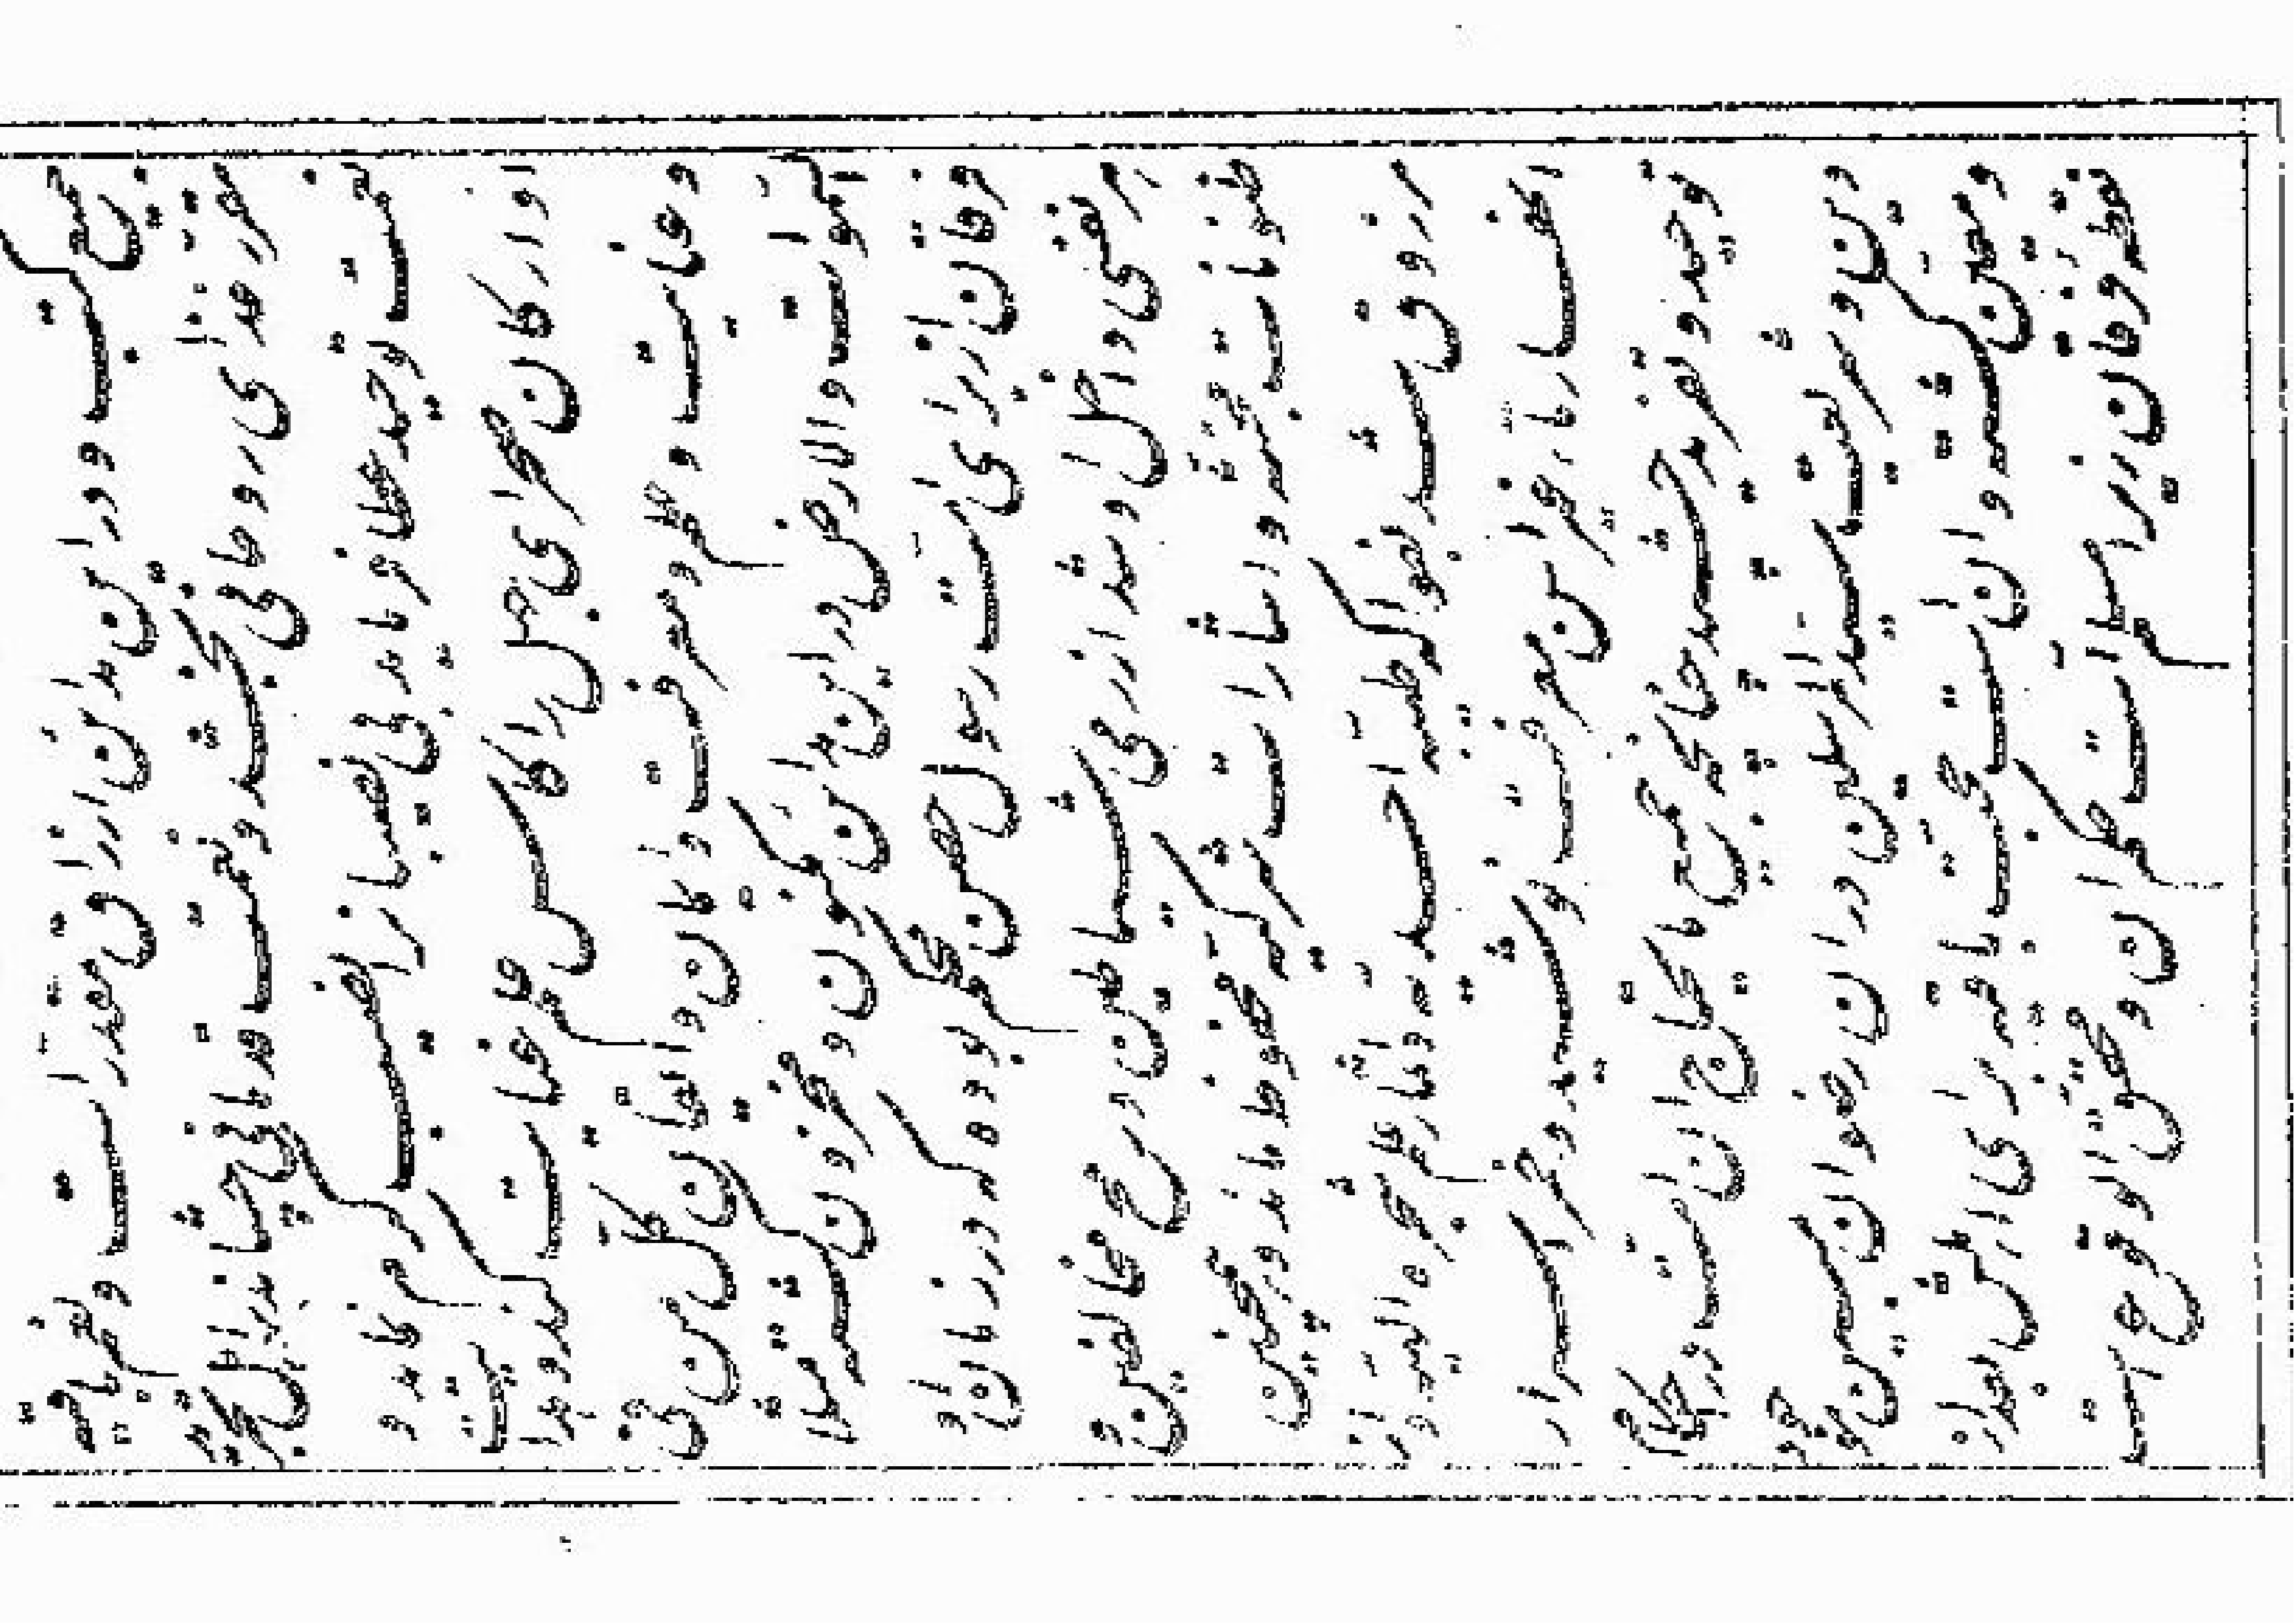 است و در این مداین ارزاق مقدر است و نعم باقیه
مقرر غذای روحانی بخشد و نعمت قدمانی چشاند اهل تجرید
را نعمت توحید عطا فرماید بی نصیبانرا نصیب کرم فرماید و
اوارگان صحرای جهل را کاس علم عنایت کند و هدایت
و عنایت و علم و معرفت و ایمان و ایقان کل من فی
السموات و الارض در این مداین مکنون و مخزون گشته مثلا
فرقان از برای امت رسول حصن محکم بوده که در زمان او
هر نفسی داخل او شد از رمی شیاطین و رمح مخالفین و
ظنونات مجتثه و اشارات شرکیه محفوظ ماند و همچنین
مرزوق شد بفواکه طیبه احدیه و اثمار علم شجره الهیه و از
انهار ماء غیر اسن معرفت نوشید و خمر اسرار
توحید و تفرید چشید چنانچه جمیع ما یحتاج ان امت از احکام
دین و شریعت سید المرسلین در ان رضوان مبین موجود
و معین گشته و ان است حجت باقیه برای اهلش بعد از
نقطه فرقان زیرا مسلم است حکم ان و محقق الوقوع است